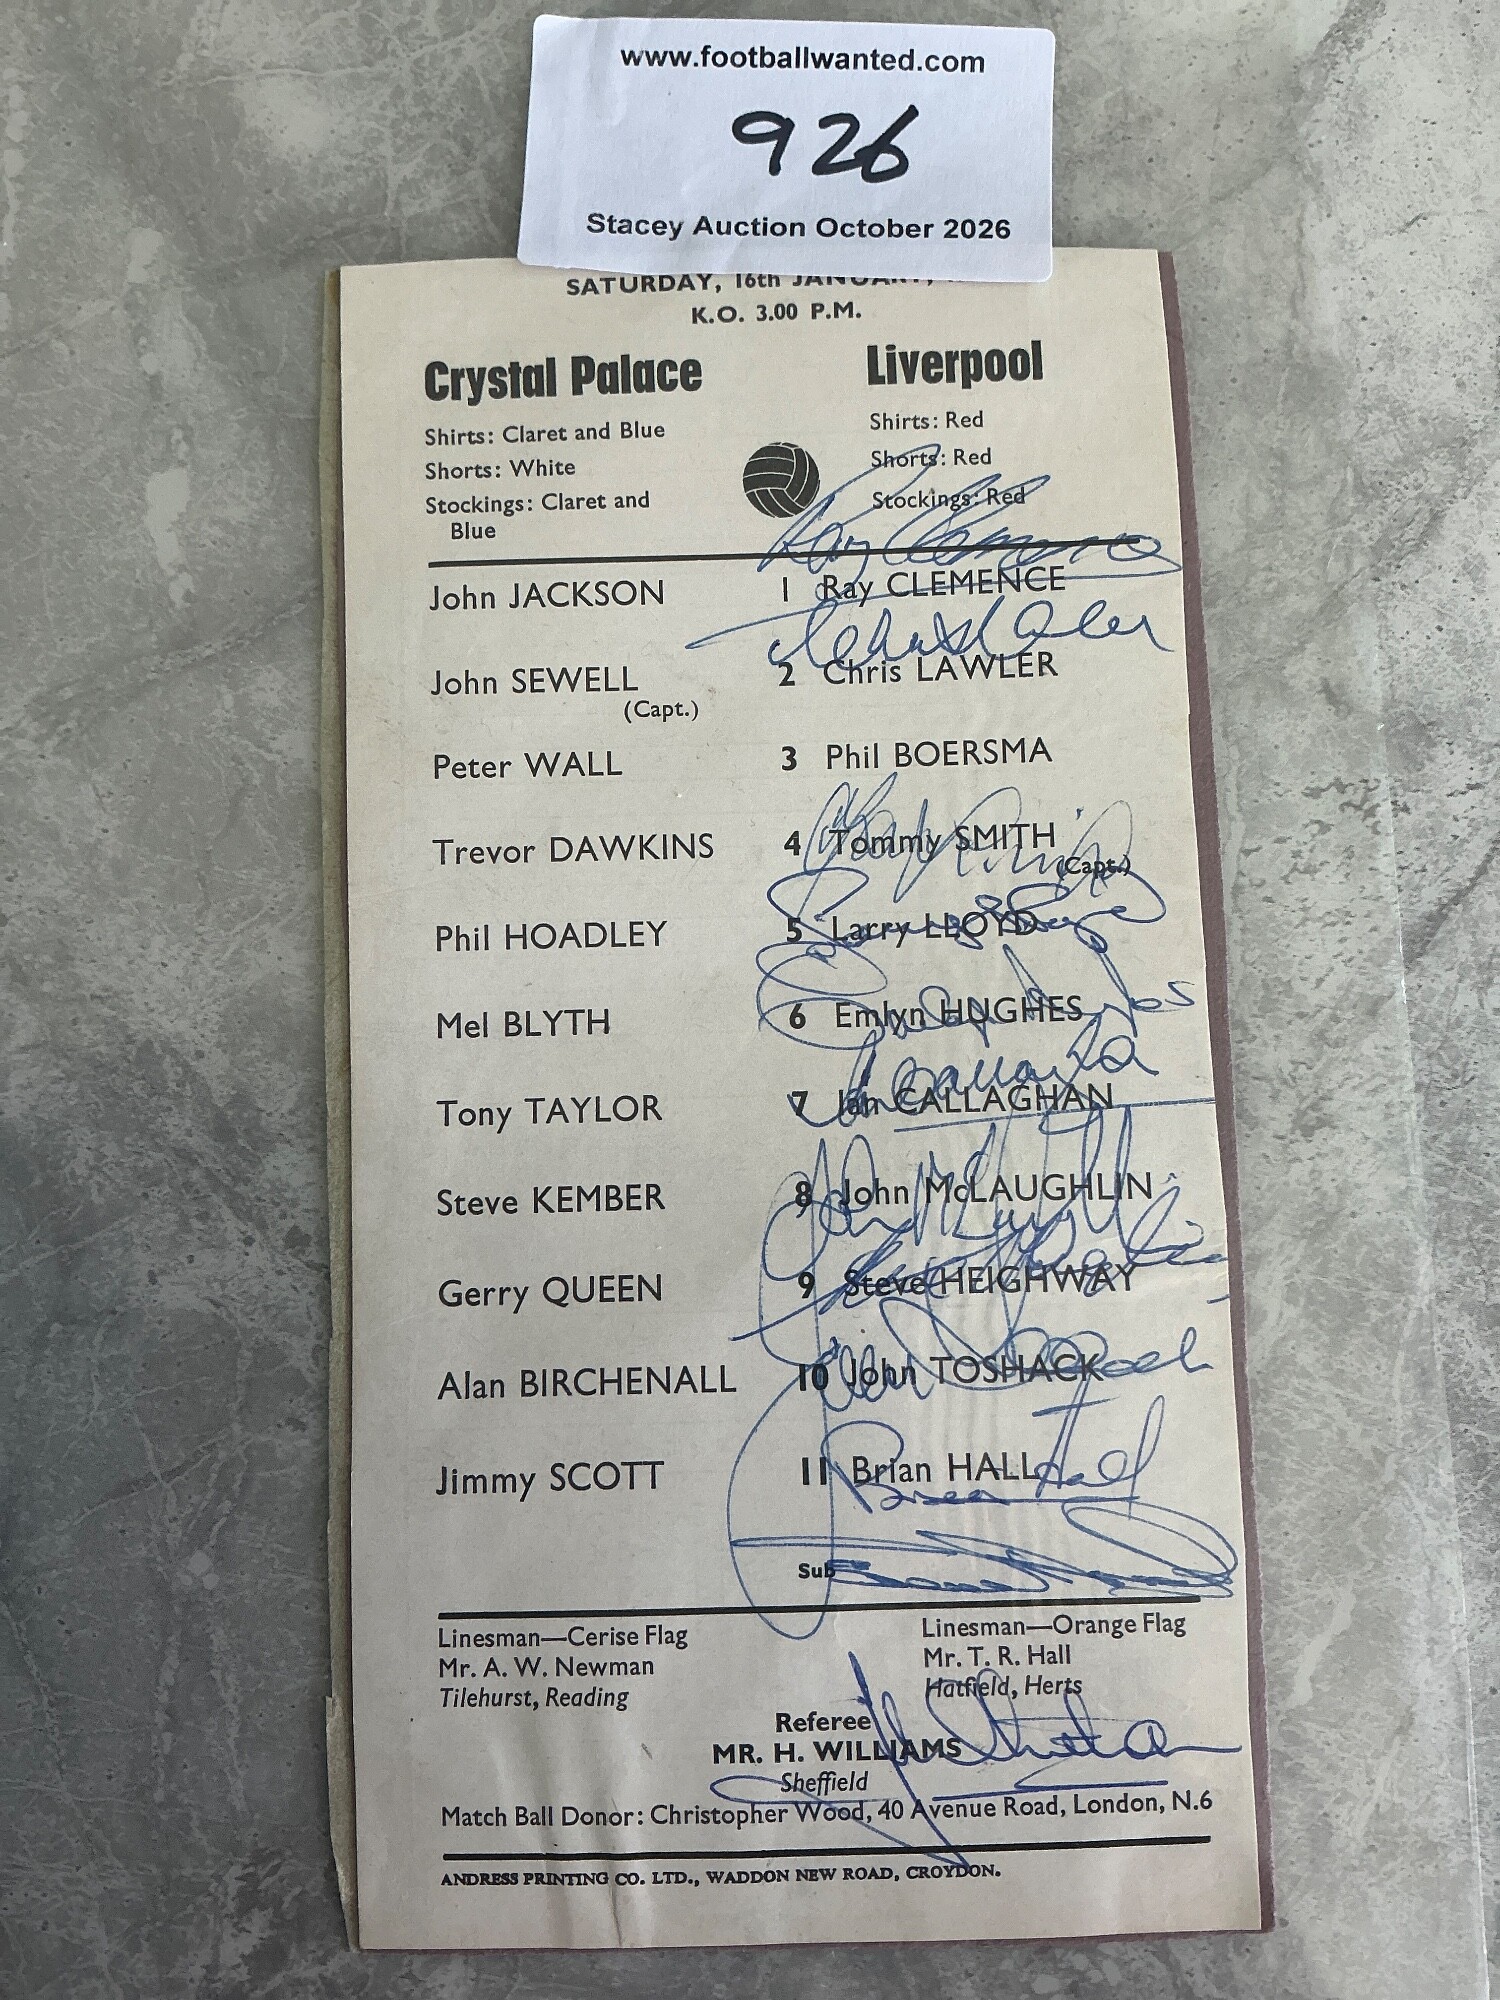 www.footballwanted.com
926
Stacey Auction October 2026
SATURDAY, 16th JANUARY,
K.O. 3.00 P.M.
Crystal Palace Liverpool
Shirts: Claret and Blue Shirts: Red
Shorts: White Shorts: Red
Stockings: Claret and Stockings: Red
Blue
Ray Clemence
John JACKSON 1 Ray CLEMENCE
John SEWELL 2 Chris LAWLER
(Capt.)
Peter WALL 3 Phil BOERSMA
Trevor DAWKINS 4 Tommy SMITH
(Capt.)
Phil HOADLEY 5 Larry LLOYD
Mel BLYTH 6 Emlyn HUGHES
Tony TAYLOR 7 Ian CALLAGHAN
Steve KEMBER 8 John McLAUGHLIN
Gerry QUEEN 9 Steve HEIGHWAY
Alan BIRCHENALL 10 John TOSHACK
Jimmy SCOTT 11 Brian HALL
Brian Hall
Sub
Linesman—Cerise Flag Linesman—Orange Flag
Mr. A. W. Newman Mr. T. R. Hall
Tilehurst, Reading Hatfield, Herts
Referee
MR. H. WILLIAMS
Sheffield
Match Ball Donor: Christopher Wood, 40 Avenue Road, London, N.6
ANDRESS PRINTING CO. LTD., WADDON NEW ROAD, CROYDON.